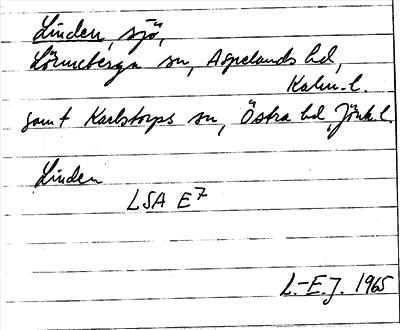 Linden, sjö,
Lönneberga sn, Aspelands hd,
Kalm. l.
samt Karlstorps sn, Östra hd Jönk. l.
Linden
LSA E7
L.-E. J. 1965